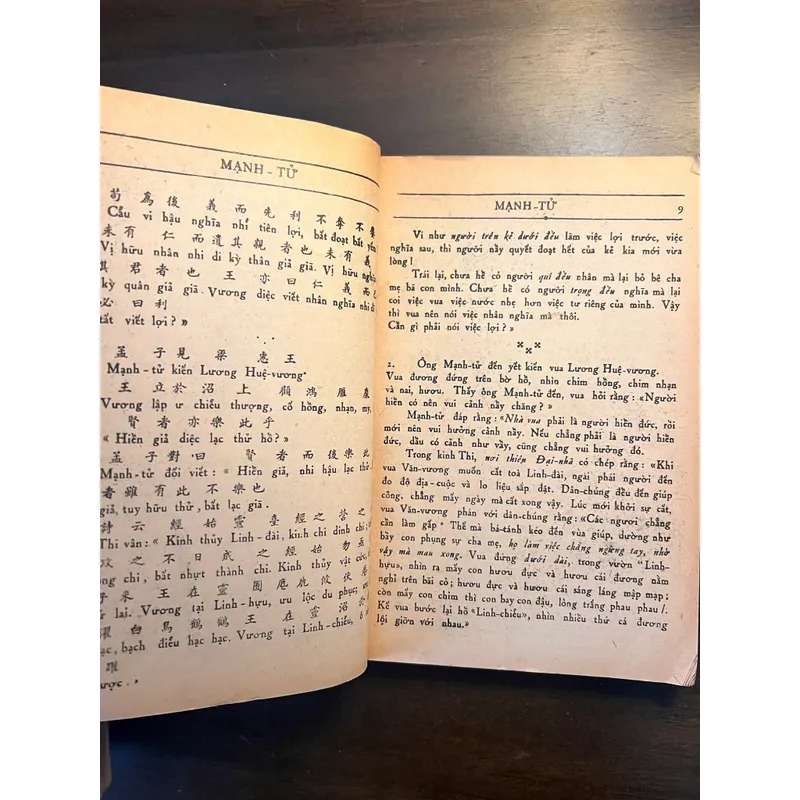 MẠNH-TỬ
苟 爲 後 義 而 先 利 不 奪 不
Cẩu vi hậu nghĩa nhi tiên lợi, bất đoạt bất yểm.
未 有 仁 而 遺 其 親 者 也 未 有
Vị hữu nhân nhi di kỳ thân giả giã. Vị hữu nghĩa
其 君 者 也 王 亦 曰 仁 義 而 已
kỳ quân giả giã. Vương diệc viết nhân nghĩa nhi dĩ
必 曰 利
tất viết lợi? »
孟 子 見 梁 惠 王
Mạnh-tử kiến Lương Huệ-vương.
王 立 於 沼 上 顧 鴻 雁 麋
Vương lập ư chiểu thượng, cố hồng, nhạn, my,
賢 者 亦 樂 此 乎
« Hiền giả diệc lạc thử hồ? »
孟 子 對 曰 賢 者 而 後 樂 此
Mạnh-tử đối viết: « Hiền giã, nhi hậu lạc thử.
者 雖 有 此 不 樂 也
giả, tuy hữu thử, bất lạc giã.
詩 云 經 始 靈 臺 經 之 營 之
Thi vân: « Kinh thủy Linh-đài, kinh chi dinh chi;
攻 之 不 日 成 之 經 始 勿 亟
chi, bất nhựt thành chi. Kinh thủy vật cức,
子 來 王 在 靈 囿 麀 鹿 攸 伏
lai. Vương tại Linh-hựu, ưu lộc du phục;
濯 白 鳥 鶴 鶴 王 在 靈 沼
bạch điểu hạc hạc. Vương tại Linh-chiểu, ô
躍
dược. »
MẠNH-TỬ 9
Vị như người trên kẻ dưới đều làm việc lợi trước, việc
nghĩa sau, thì người nầy quyết đoạt hết của kẻ kia mới vừa
lòng!
Trái lại, chưa hề có người quí đều nhân mà lại bỏ bê cha
mẹ bá con mình. Chưa hề có người trọng đều nghĩa mà lại
coi việc vua việc nước nhẹ hơn việc tư riêng của mình. Vậy
thì vua nên nói việc nhân nghĩa mà thôi.
Cần gì phải nói việc lợi? »
2. Ông Mạnh-tử đến yết kiến vua Lương Huệ-vương.
Vua đương đứng trên bờ hồ, nhìn chim hồng, chim nhạn
và nai, hươu. Thấy ông Mạnh-tử đến, vua hỏi rằng: «Người
hiền có nên vui cảnh nầy chăng? »
Mạnh-tử đáp rằng: «Nhà vua phải là người hiền đức, rồi
mới nên vui hưởng cảnh nầy. Nếu chẳng phải là người hiền
đức, dầu có cảnh như vầy, cũng chẳng vui hưởng đó.
Trong kinh Thi, nơi thiên Đại-nhã có chép rằng: «Khi
vua Văn-vương muốn cất toà Linh-đài, ngài phái người đến
đo độ địa-cuộc và lo liệu sắp đặt. Dân-chúng đều đến giúp
công, chẳng mấy ngày mà cất xong vậy. Lúc mới khởi sự cất,
vua Văn-vương phán với dân-chúng rằng: «Các ngươi chẳng
cần làm gấp» Thế mà bá-tánh kéo đến vùa giúp, dường như
bày con phụng sự cha mẹ, họ làm việc chẳng ngừng tay, nhờ
vậy mà mau xong. Vua đứng dưới đài, trong vườn "Linh-
hựu», nhìn ra mấy con hươu đực và hươu cái đương nằm
nghỉ trên bãi cỏ; hươu đực và hươu cái sáng láng mập mạp;
còn mấy con chim thì con bay con đậu, lông trắng phau phau!.
Kế vua bước lại hồ «Linh-chiểu», nhìn nhiều thứ cá đương
lội giỡn với nhau.»